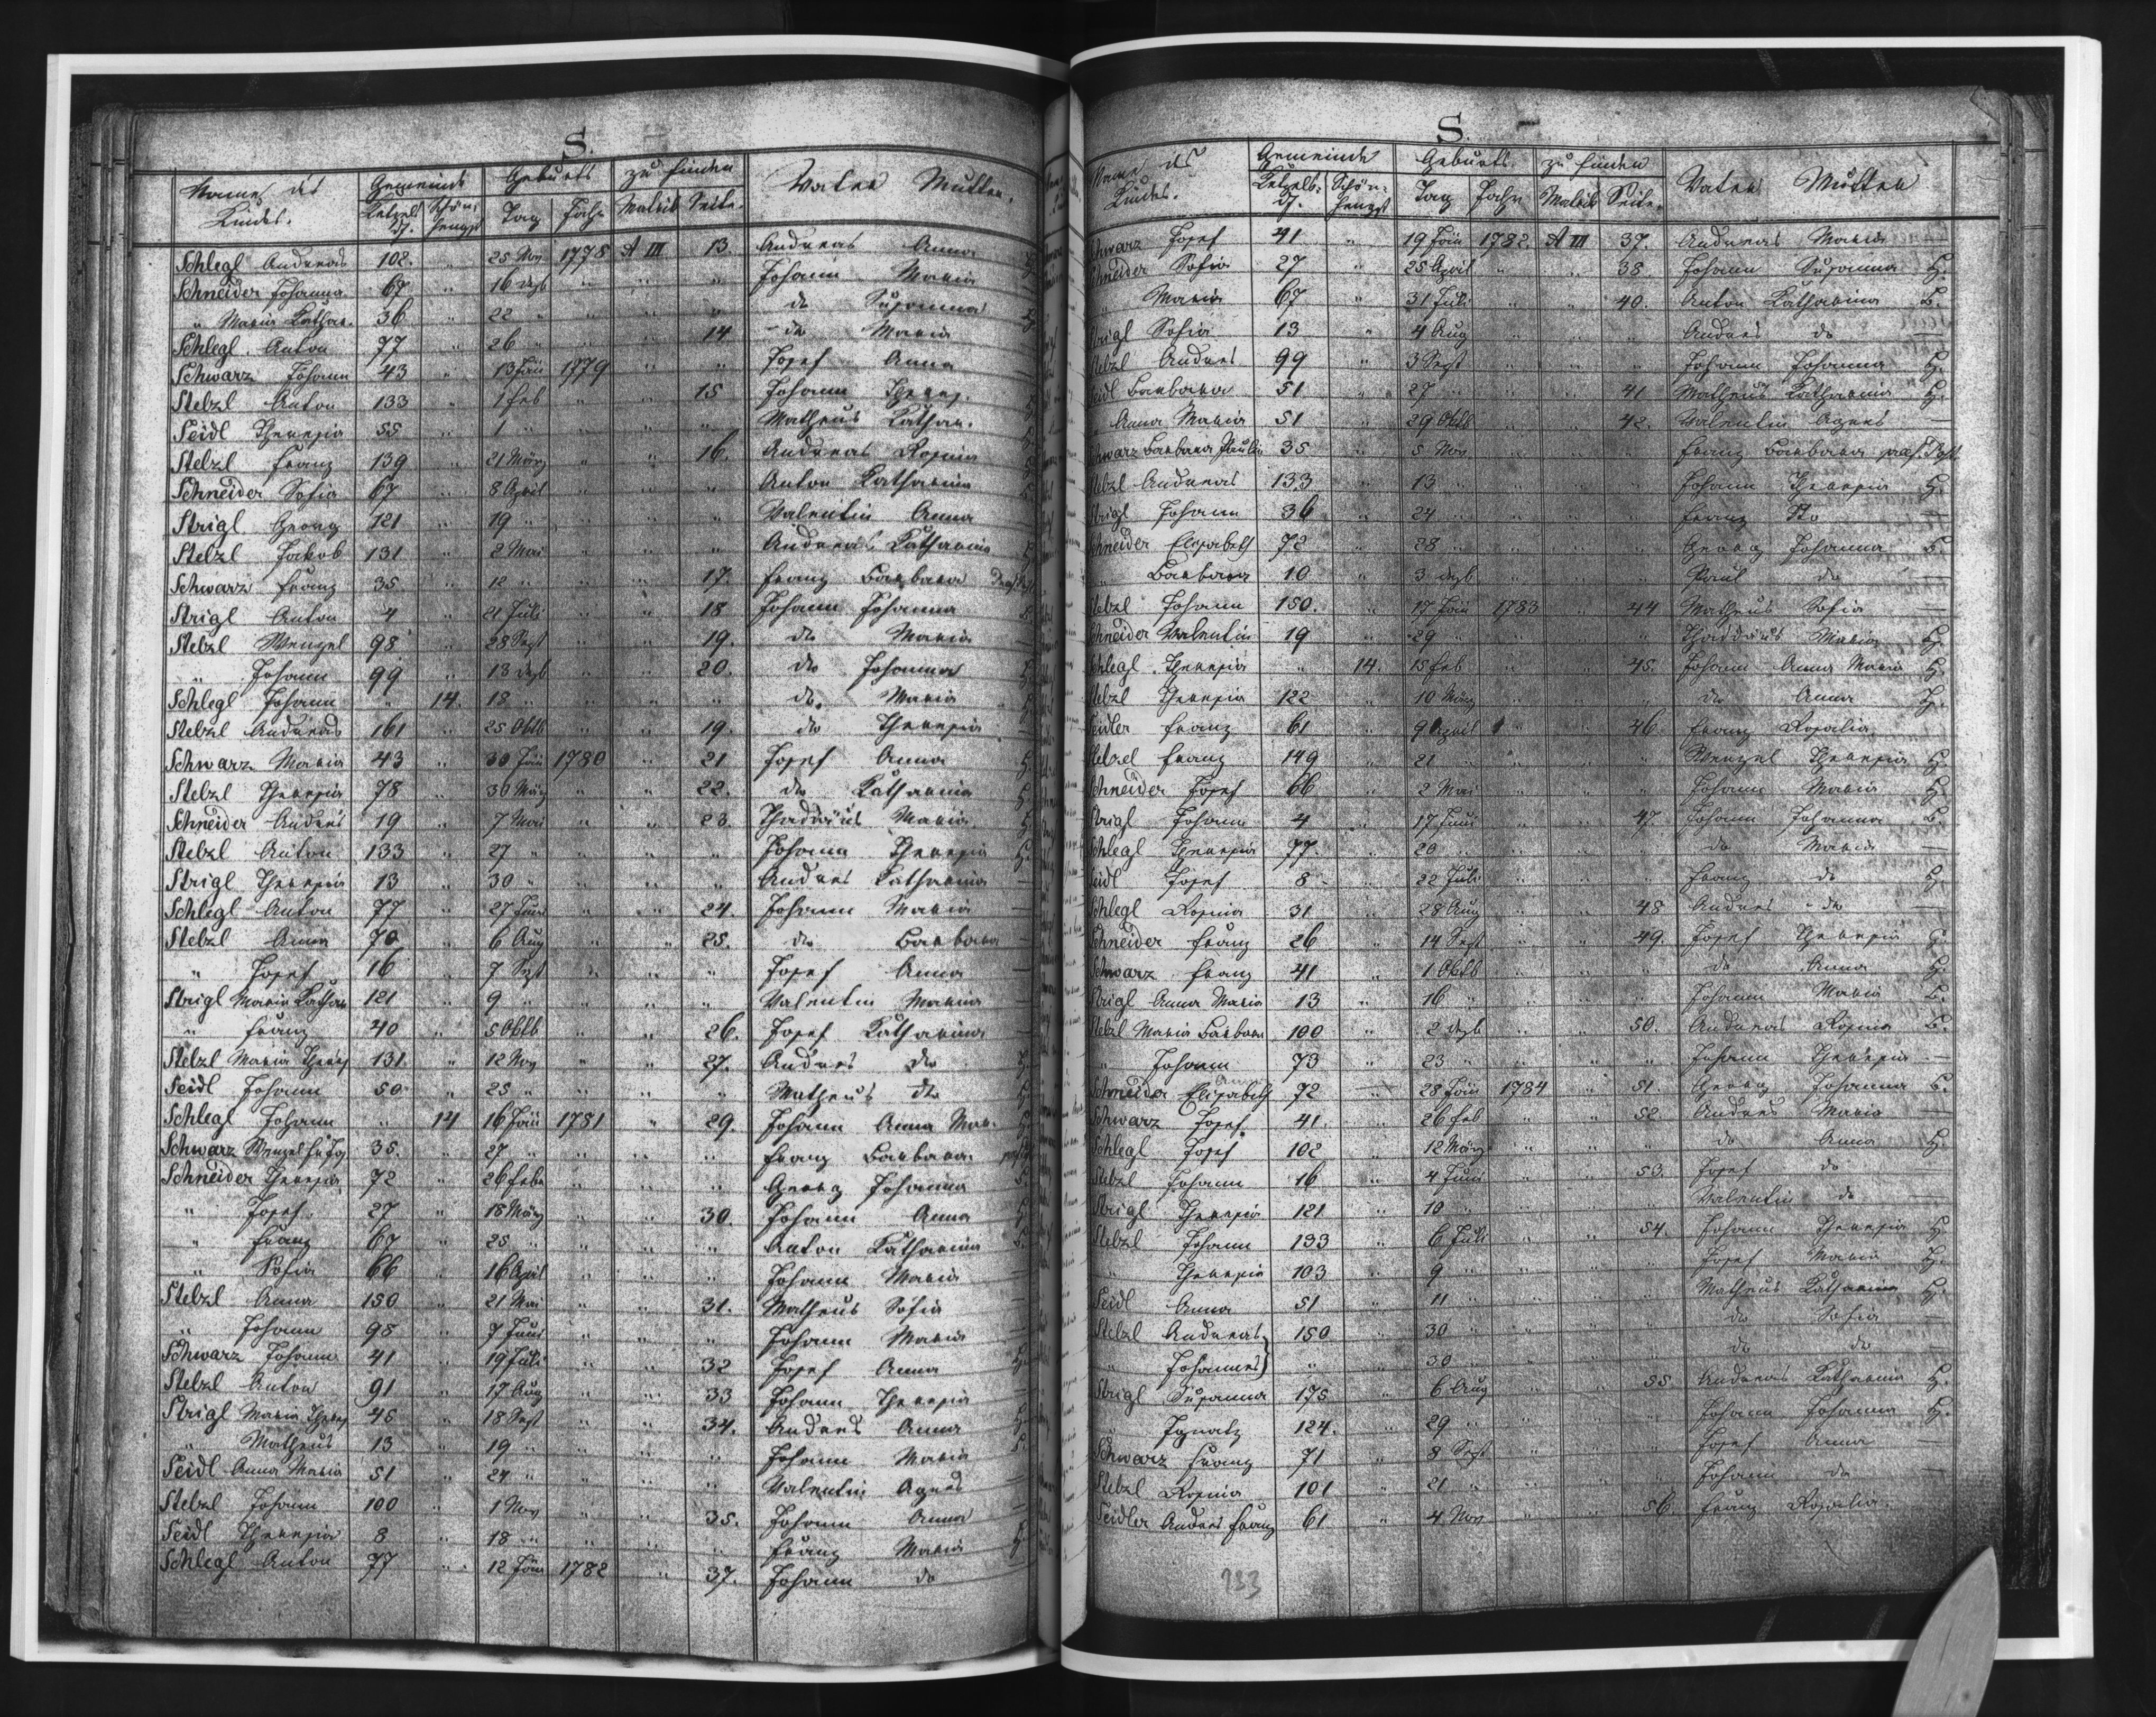 S.
Name des Kindes. Gemeinde Geburts zu finden Vater Mutter.
Ketzelsdf. Schönhengst Tag Jahr Matrik Seite.
Schlegl Andreas 102. " 25 Nov 1778 A III 13. Andreas Anna
Schneider Johanna 67 " 16 dezb " " " Johann Maria
" Maria Kathar. 36 " 22 " " " " do Susanna
Schlegl Anton 77 " 26 " " " 14 do Maria
Schwarz Johann 43 " 13 Jän 1779 " " Josef Anna
Stelzl Anton 133 " 1 feb " " 15 Johann Theres.
Seidl Theresia 55 " 1 " " " " Matheus Kathar.
Stelzl Franz 139 " 21 März " " 16. Andreas Rosina
Schneider Sofia 67 " 8 April " " " Anton Katharina
Strigl Georg 121 " 19 " " " " Valentin Anna
Stelzl Jakob 131 " 2 Mai " " " Andreas Katharina
Schwarz Franz 35 " 12 " " " 17. Franz Barbara
Strigl Anton 4 " 21 Juli " " 18 Johann Johanna
Stelzl Wenzel 98 " 28 Sept " " 19. do Maria
" Johann 99 " 13 dezb " " 20. do Johanna
Schlegl Johann " 14. 18 " " " " do. Maria
Stelzl Andreas 161 " 25 Oktb " " 19. do Theresia
Schwarz Maria 43 " 30 Jän 1780 " 21 Josef Anna
Stelzl Theresia 78 " 30 März " " 22. do Katharina
Schneider Andres 19 " 7 Mai " " 23. Thaddäus Maria
Stelzl Anton 133 " 27 " " " " Johann Theresia
Strigl Theresia 13 " 30 " " " " Andres Katharina
Schlegl Anton 77 " 27 Juni " " 24. Johann Maria
Stelzl Anna 70 " 6 Aug " " 25. do Barbara
" Josef 16 " 7 Sept " " " Josef Anna
Strigl Maria Kathar 121 " 9 " " " " Valentin Maria
" Franz 40 " 5 Oktb " " 26. Josef Katharina
Stelzl Maria Theres 131. " 12 Nov " " 27. Andres do
Seidl Johann 50 " 25 " " " " Matheus do
Schlegl Johann " 14 16 Jän 1781 " 29. Johann Anna Mar.
Schwarz Wenzel 35. " 27 " " " " Franz Barbara
Schneider Theresia 72 " 26 febr " " " Georg Johanna
" Josef 27 " 18 März " " 30. Johann Anna
" Franz 67 " 25 " " " " Anton Katharina
" Sofia 66 " 16 April " " " Johann Maria
Stelzl Anna 150 " 21 Mai " " 31. Matheus Sofia
" Johann 98 " 7 Juni " " " Johann Maria
Schwarz Johann 41 " 19 Juli " " 32 Josef Anna
Stelzl Anton 91 " 17 Aug " " 33 Johann Theresia
Strigl Maria Theres 45 " 18 Sept " " 34. Andres Anna
" Matheus 13 " 19 " " " " Johann Maria
Seidl Anna Maria 51 " 24 " " " " Valentin Agnes
Stelzl Johann 100 " 1 Nov " " 35. Johann Anna
Seidl Theresia 8 " 18 " " " " Franz Maria
Schlegl Anton 77 " 12 Jän 1782 " 37. Johann do
S.
Name des Kindes. Gemeinde Geburts zu finden Vater Mutter
Ketzelsdf. Schönhengst Tag Jahr Matrik Seite.
Schwarz Josef 41 " 19 Jän 1782. A III 37. Andreas Maria
Schneider Sofia 27 " 25 April " " 38. Johann Susanna H.
" Maria 67 " 31 Juli " " 40. Anton Katharina B.
Strigl Sofia 13 " 4 Aug " " " Andres do —
Stelzl Andres 99 " 3 Sept " " " Johann Johanna H.
Seidl Barbara 51 " 27 " " " 41 Matheus Katharina H.
" Anna Maria 51 " 29 Oktb " " 42. Valentin Agnes —
Schwarz Barbara Paulin 35 " 5 Nov " " " Franz Barbara
Stelzl Andreas 133 " 13 " " " " Johann Theresia H.
Strigl Johann 36 " 24 " " " " Franz do —
Schneider Elisabeth 72 " 28 " " " " Georg Johanna B.
" Barbara 10 " 3 dezb " " " Paul do —
Stelzl Johann 150. " 17 Jän 1783 " 44 Matheus Sofia —
Schneider Valentin 19 " 29 " " " " Thaddäus Maria H.
Schlegl Theresia " 14. 15 feb " " 45. Johann Anna Maria H.
Stelzl Theresia 122 " 10 März " " " do Anna H.
Seidler Franz 61 " 9 April " " 46. Franz Rosalia
Stelzel Franz 149 " 21 " " " " Wenzel Theresia H.
Schneider Josef 66 " 2 Mai " " " Johann Maria H.
Strigl Johann 4 " 17 Juni " " 47. Johann Johanna B.
Schlegl Theresia 77. " 20 " " " " do Maria —
Seidl Josef 8 " 22 Juli " " " Franz do H.
Schlegl Rosina 31 " 28 Aug " " 48 Andres do —
Schneider Franz 26 " 14 Sept " " 49. Josef Theresia H.
Schwarz Franz 41 " 1 Oktb " " " do Anna H.
Strigl Anna Maria 13 " 16 " " " " Johann Maria B.
Stelzl Maria Barbara 100 " 2 dezb " " 50. Andreas Rosina B.
" Johann 73 " 23 " " " " Johann Theresia —
Schneider Anna Elisabeth 72 " 28 Jän 1784 " 51. Georg Johanna B.
Schwarz Josef 41. " 26 feb " " 52 Andres Maria —
Schlegl Josef 102 " 12 März " " " do Anna H.
Stelzl Johann 16 " 4 Juni " " 53. Josef do
Strigl Theresia 121 " 10 " " " " Valentin do —
Stelzl Johann 133 " 6 Juli " " 54. Johann Theresia H.
" Theresia 103 " 9 " " " " Josef Maria H.
Seidl Anna 51 " 11 " " " " Matheus Katharina H.
Stelzl Andreas 150 " 30 " " " " do Sofia —
" Johannes " " 30 " " " " do do —
Strigl Susanna 175 " 6 Aug " " 55 Andreas Katharina H.
" Ignatz 124. " 29 " " " " Johann Johanna H.
Schwarz Franz 71 " 8 Sept " " " Josef Anna —
Stelzl Rosina 101 " 21 " " " " Johann do —
Seidler Andres Franz 61 " 4 Nov " " 56. Franz Rosalia.
233